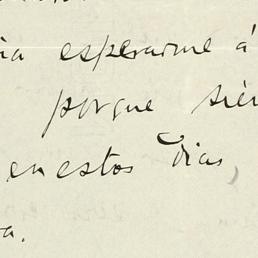 ia esperarme á
porque sien
en estos dias,
a.